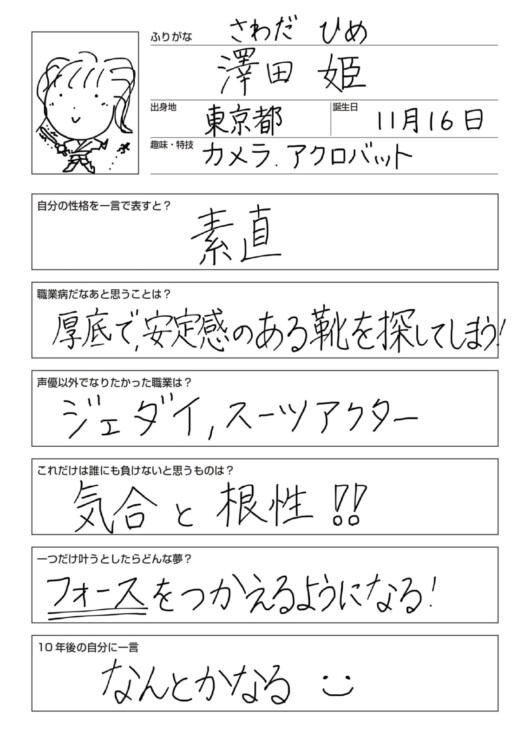 ふりがな さわだ ひめ
澤田 姫
出身地 東京都 誕生日 11月16日
趣味・特技 カメラ.アクロバット
自分の性格を一言で表すと？
素直
職業病だなあと思うことは？
厚底で,安定感のある靴を探してしまう!
声優以外でなりたかった職業は？
ジェダイ,スーツアクター
これだけは誰にも負けないと思うものは？
気合と根性!!
一つだけ叶うとしたらどんな夢？
フォースをつかえるようになる!
10年後の自分に一言
なんとかなる